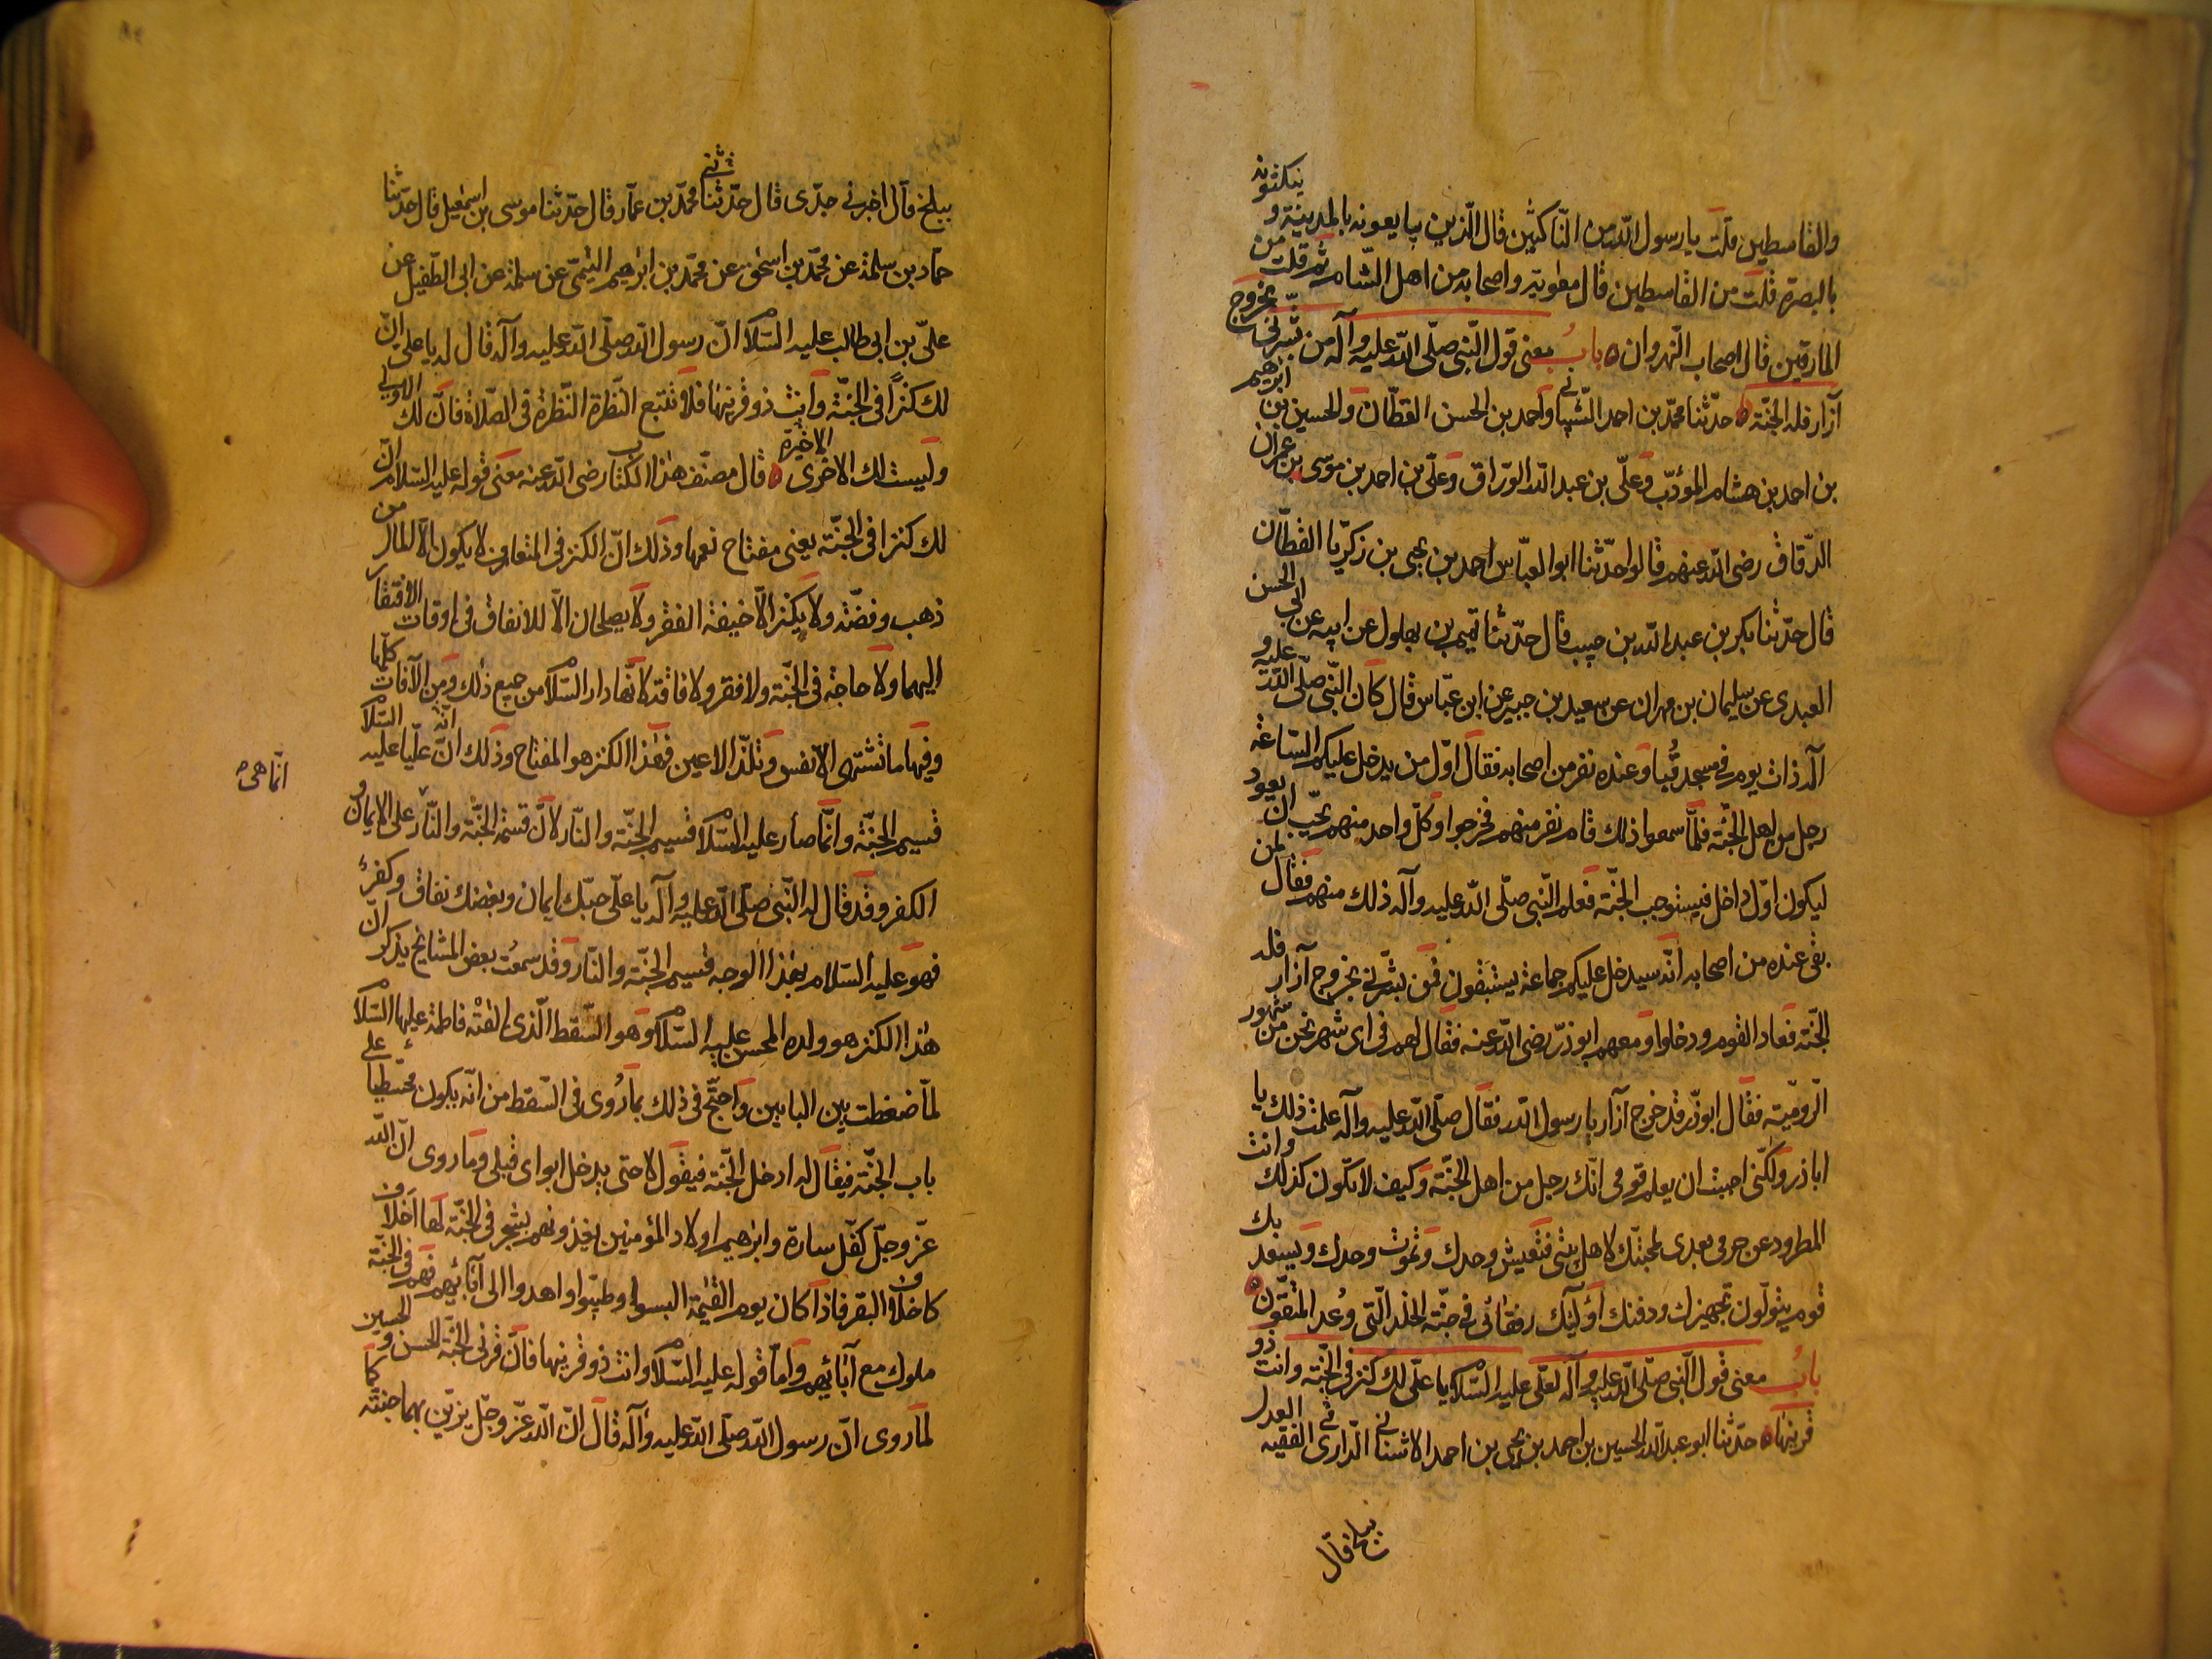 والقاسطين قلت يا رسول الله من الناكثين قال الذين يبايعونه بالمدينة و ينكثونه
بالبصرة قلت من القاسطين قال معٰوية واصحابه من اهل الشام ثم قلت من
المارقين قال اصحاب النهروان باب معنى قول النبي صلّى الله عليه وآله من بشّرني بخروج
آزار فله الجنّة حدّثنا محمّد بن احمد الشيباني واحمد بن الحسن القطّان والحسين بن ابرٰهيم
بن احمد بن هشام المؤدّب وعلّي بن عبد الله الورّاق وعلّي بن احمد بن موسى بن عمران
الدّقاق رضى الله عنهم قالوا حدّثنا ابو العبّاس احمد بن يحيى بن زكريّا القطّان
قال حدّثنا بكر بن عبد الله بن حبيب قال حدّثنا تميم بن بهلول عن ابيه عن ابى الحسن
العبدى عن سليمان بن مهران عن سعيد بن جبير عن ابن عبّاس قال كان النّبي صلّى الله عليه و
آله ذات يوم في مسجد قُبا وعنده نفر من اصحابه فقال اوّل من يدخل عليكم السّاعة
رجل من اهل الجنّة فلمّا سمعوا ذلك قام نفر منهم فخرجوا وكلّ واحد منهم يحبّ ان يعود
ليكون اوّل داخل فيستوجب الجنّة فعلم النّبي صلّى الله عليه وآله ذلك منهم فقال لمن
بقى عنده من اصحابه انّه سيدخل عليكم جماعة يستبقون فمن بشّرني بخروج آزار فله
الجنّة فعاد القوم ودخلوا ومعهم ابوذرّ رضى الله عنه فقال لهم في اى شهر نحن من شهور
الرّوميّة فقال ابوذر قد خرج آزار يا رسول الله فقال صلّى الله عليه وآله علمت ذلك يا
اباذر ولكنّى احببت ان يعلم قومى انّك رجل من اهل الجنّة وكيف لا تكون كذلك وانت
المطرود عن حرمى بعدى لمحبّتك لاهل بيتى فتعيش وحدك وتموت وحدك ويسعد بك
قوم يتولّون تجهيزك ودفنك اولٰئك رفقائى في جنّة الخلد الّتى وُعد المتقّون
باب معنى قول النّبي صلّى الله عليه وآله لعلّي عليه السّلام يا علّي لك كنز في الجنّة وانت ذو
قرنيها حدّثنا ابو عبد الله الحسين بن احمد بن يحيى بن احمد الاشناني الدّارى الفقيه العدل
ببلخ قال
ببلخ قال اخبرني جدّى قال حدّثنا محمّد بن عمّار قال حدّثنا موسى بن اسمٰعيل قال حدّثنا
حمّاد بن سلمة عن محمّد بن اسحٰق عن محمّد بن ابرٰهيم التيمّى عن سلمة عن ابى الطّفيل عن
علّي بن ابى طالب عليه السّلام انّ رسول الله صلّى الله عليه وآله قال له يا على انّ
لك كنزاً في الجنّة وانت ذو قرنيها فلا تتبع النّظرة النّظرة في الصّلاة فانّ لك الاولى
وليست لك الاخرى الاخيرة قال مصنّف هذا الكتاب رضى الله عنه معنى قوله عليه السّلام انّ
لك كنزا في الجنّة يعنى مفتاح نعمها وذلك انّ الكنز في المتعارف لا يكون الّا المال من
ذهب وفضّة ولا يكنز الّا خيفة الفقر ولا يصلحان الّا للانفاق في اوقات الافتقار
اليهما ولا حاجة في الجنّة ولا فقر ولا فاقة لانّها دار السّلام من جميع ذلك ومن الآفات كلّها
وفيها ما تشتهى الانفس وتلذّ الاعين فهذا الكنز هو المفتاح وذلك انّ انّه عليّا عليه السّلام
قسيم الجنّة وانّما صار عليه السّلام قسيم الجنّة والنّار لانّ قسمة الجنّة والنّار على الايمان و
انّما هي
الكفر وقد قال له النّبي صلّى الله عليه وآله يا علّى حبّك ايمان وبغضك نفاق وكفر
فهو عليه السّلام بهذا الوجه قسيم الجنّة والنّار وقد سمعت بعض المشايخ يذكر ان
هٰذا الكنز هو ولده المحسن عليه السّلام وهو السّقط الّذى القته فاطمة عليها السّلام
لمّا ضغطت بين البابين واحتجّ في ذلك بما رُوى في السّقط من انّه يكون محبنطئا على
باب الجنّة فيقال له ادخل الجنّة فيقول لا حتى يدخل ابواى قبلى وما روى انّ الله
عزّ وجلّ كفّل سارة وابرٰهيم اولاد المؤمنين يغذونهم بشجر في الجنّة لها اخلاف
كاخلاف البقر فاذا كان يوم القيٰمة البسوا وطيّبوا واهدوا الى آبائهم فهم في الجنّة
ملوك مع آبائهم وامّا قوله عليه السّلام وانت ذو قرنيها فانّ قرنى الجنّة الحسن والحسين
لما روى انّ رسول الله صلّى الله عليه وآله قال انّ الله عزّ وجلّ يزيّن بهما جنّته كما